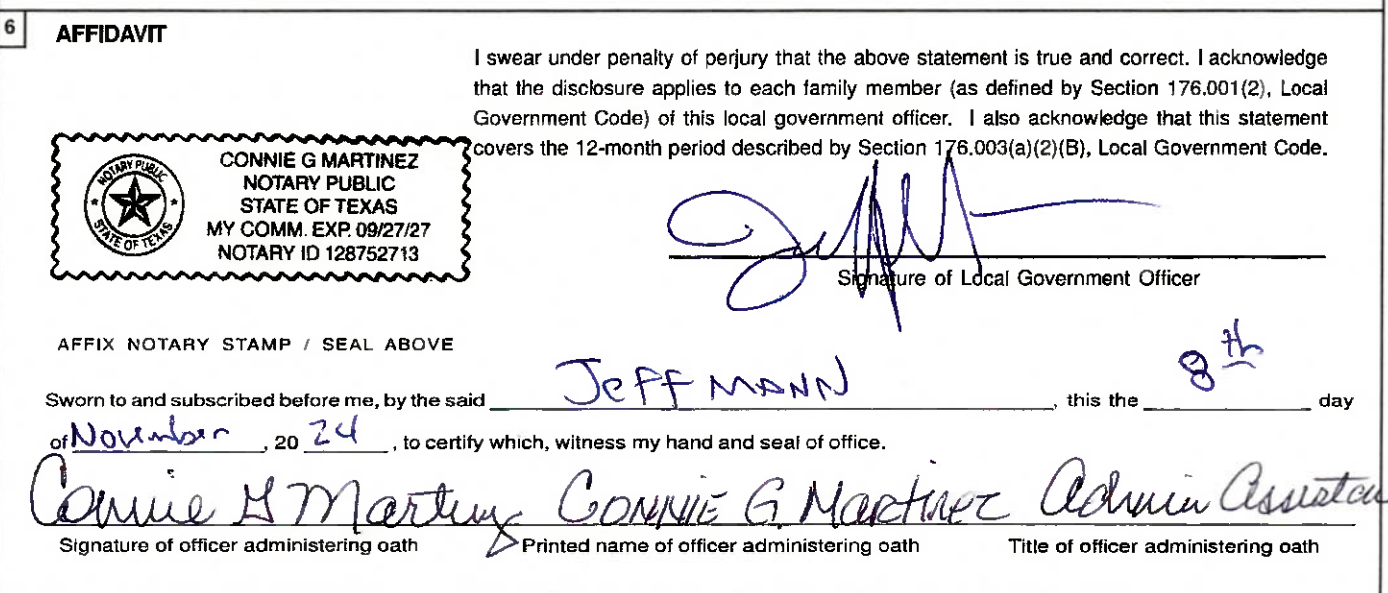 6
AFFIDAVIT
I swear under penalty of perjury that the above statement is true and correct. I acknowledge
that the disclosure applies to each family member (as defined by Section 176.001(2), Local
Government Code) of this local government officer. I also acknowledge that this statement
covers the 12-month period described by Section 176.003(a)(2)(B), Local Government Code.
NOTARY PUBLIC
STATE OF TEXAS
CONNIE G MARTINEZ
NOTARY PUBLIC
STATE OF TEXAS
MY COMM. EXP. 09/27/27
NOTARY ID 128752713
Signature of Local Government Officer
AFFIX NOTARY STAMP / SEAL ABOVE
Sworn to and subscribed before me, by the said JEFF MANN, this the 8th day
of November, 20 24, to certify which, witness my hand and seal of office.
Connie G Martinez CONNIE G. Martinez Admin Assistan
Signature of officer administering oath Printed name of officer administering oath Title of officer administering oath